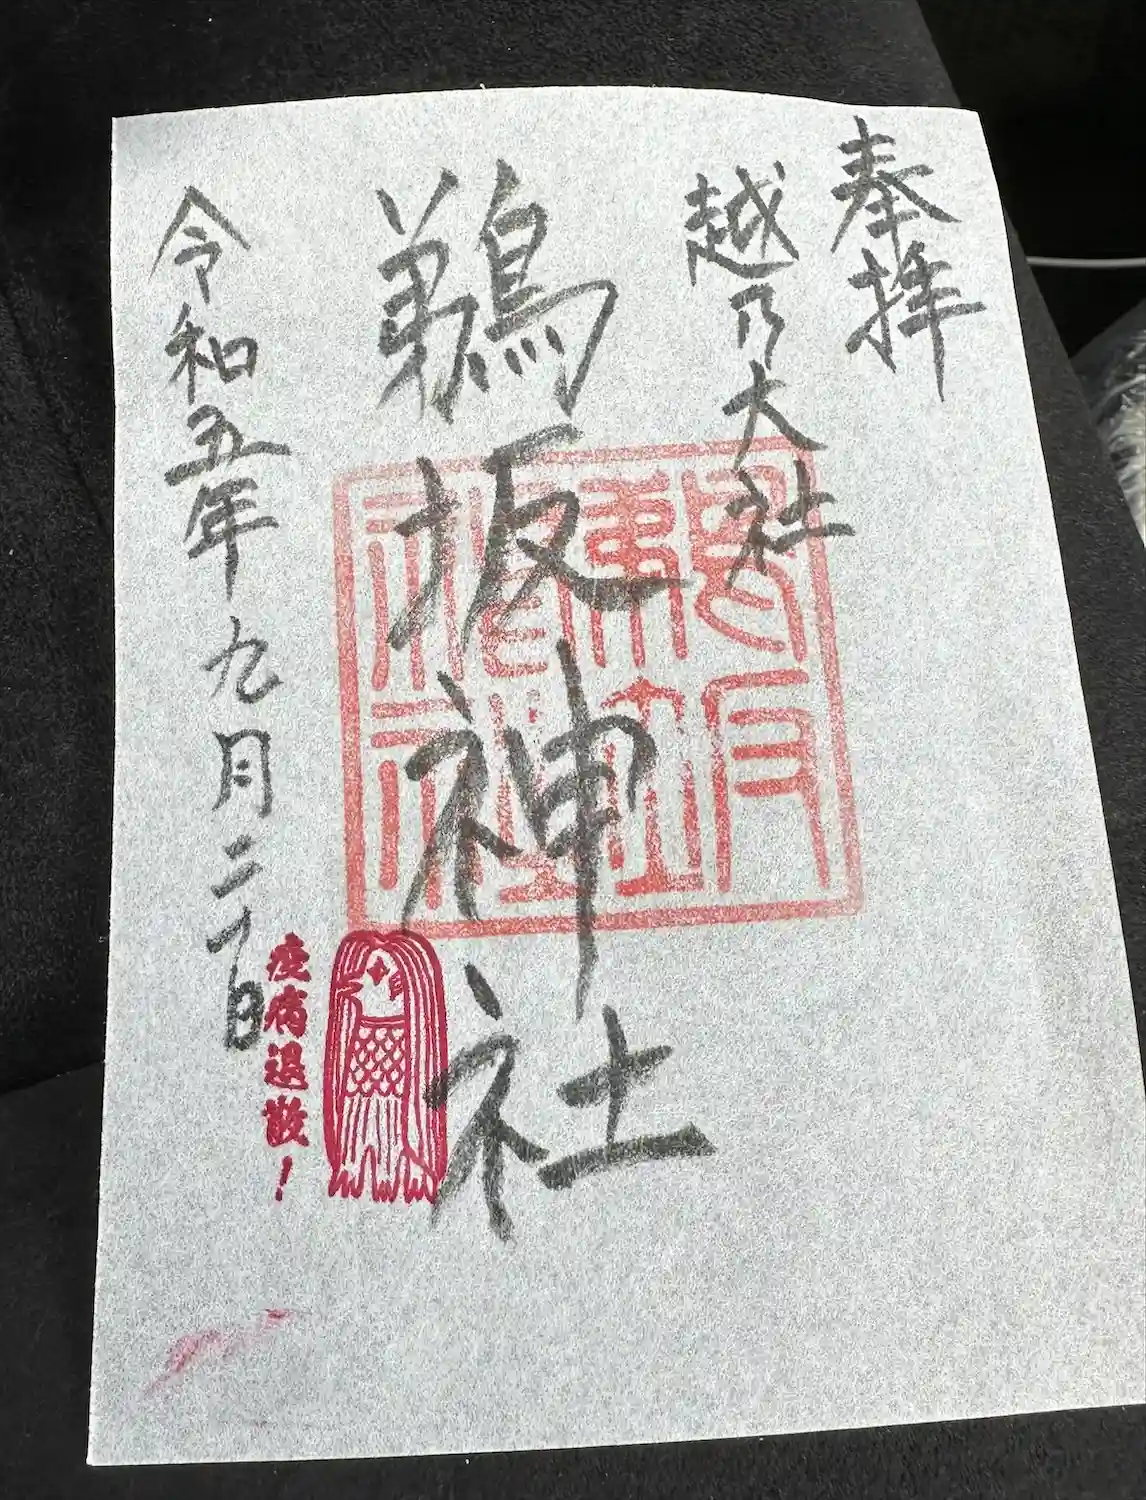 奉拝
越乃大社
鵜坂神社
令和五年九月二十日
疫病退散!